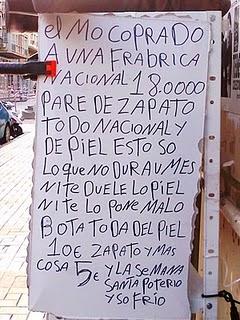 el MO COPRADO
A UNA FRABRICA
NACIONAL 18.0000
PARE DE ZAPATO
TODO NACIONAL Y
DE PIEL ESTO SO
LO QUE NO DURA UMES
NI TE DUELE LO PIEL
NI TE LO PONE MALO
BOTA TODA DEL PIEL
10€ ZAPATO Y MAS
COSA 5€ Y LA SEMANA
SANTA POTERIO
Y SO FRIO